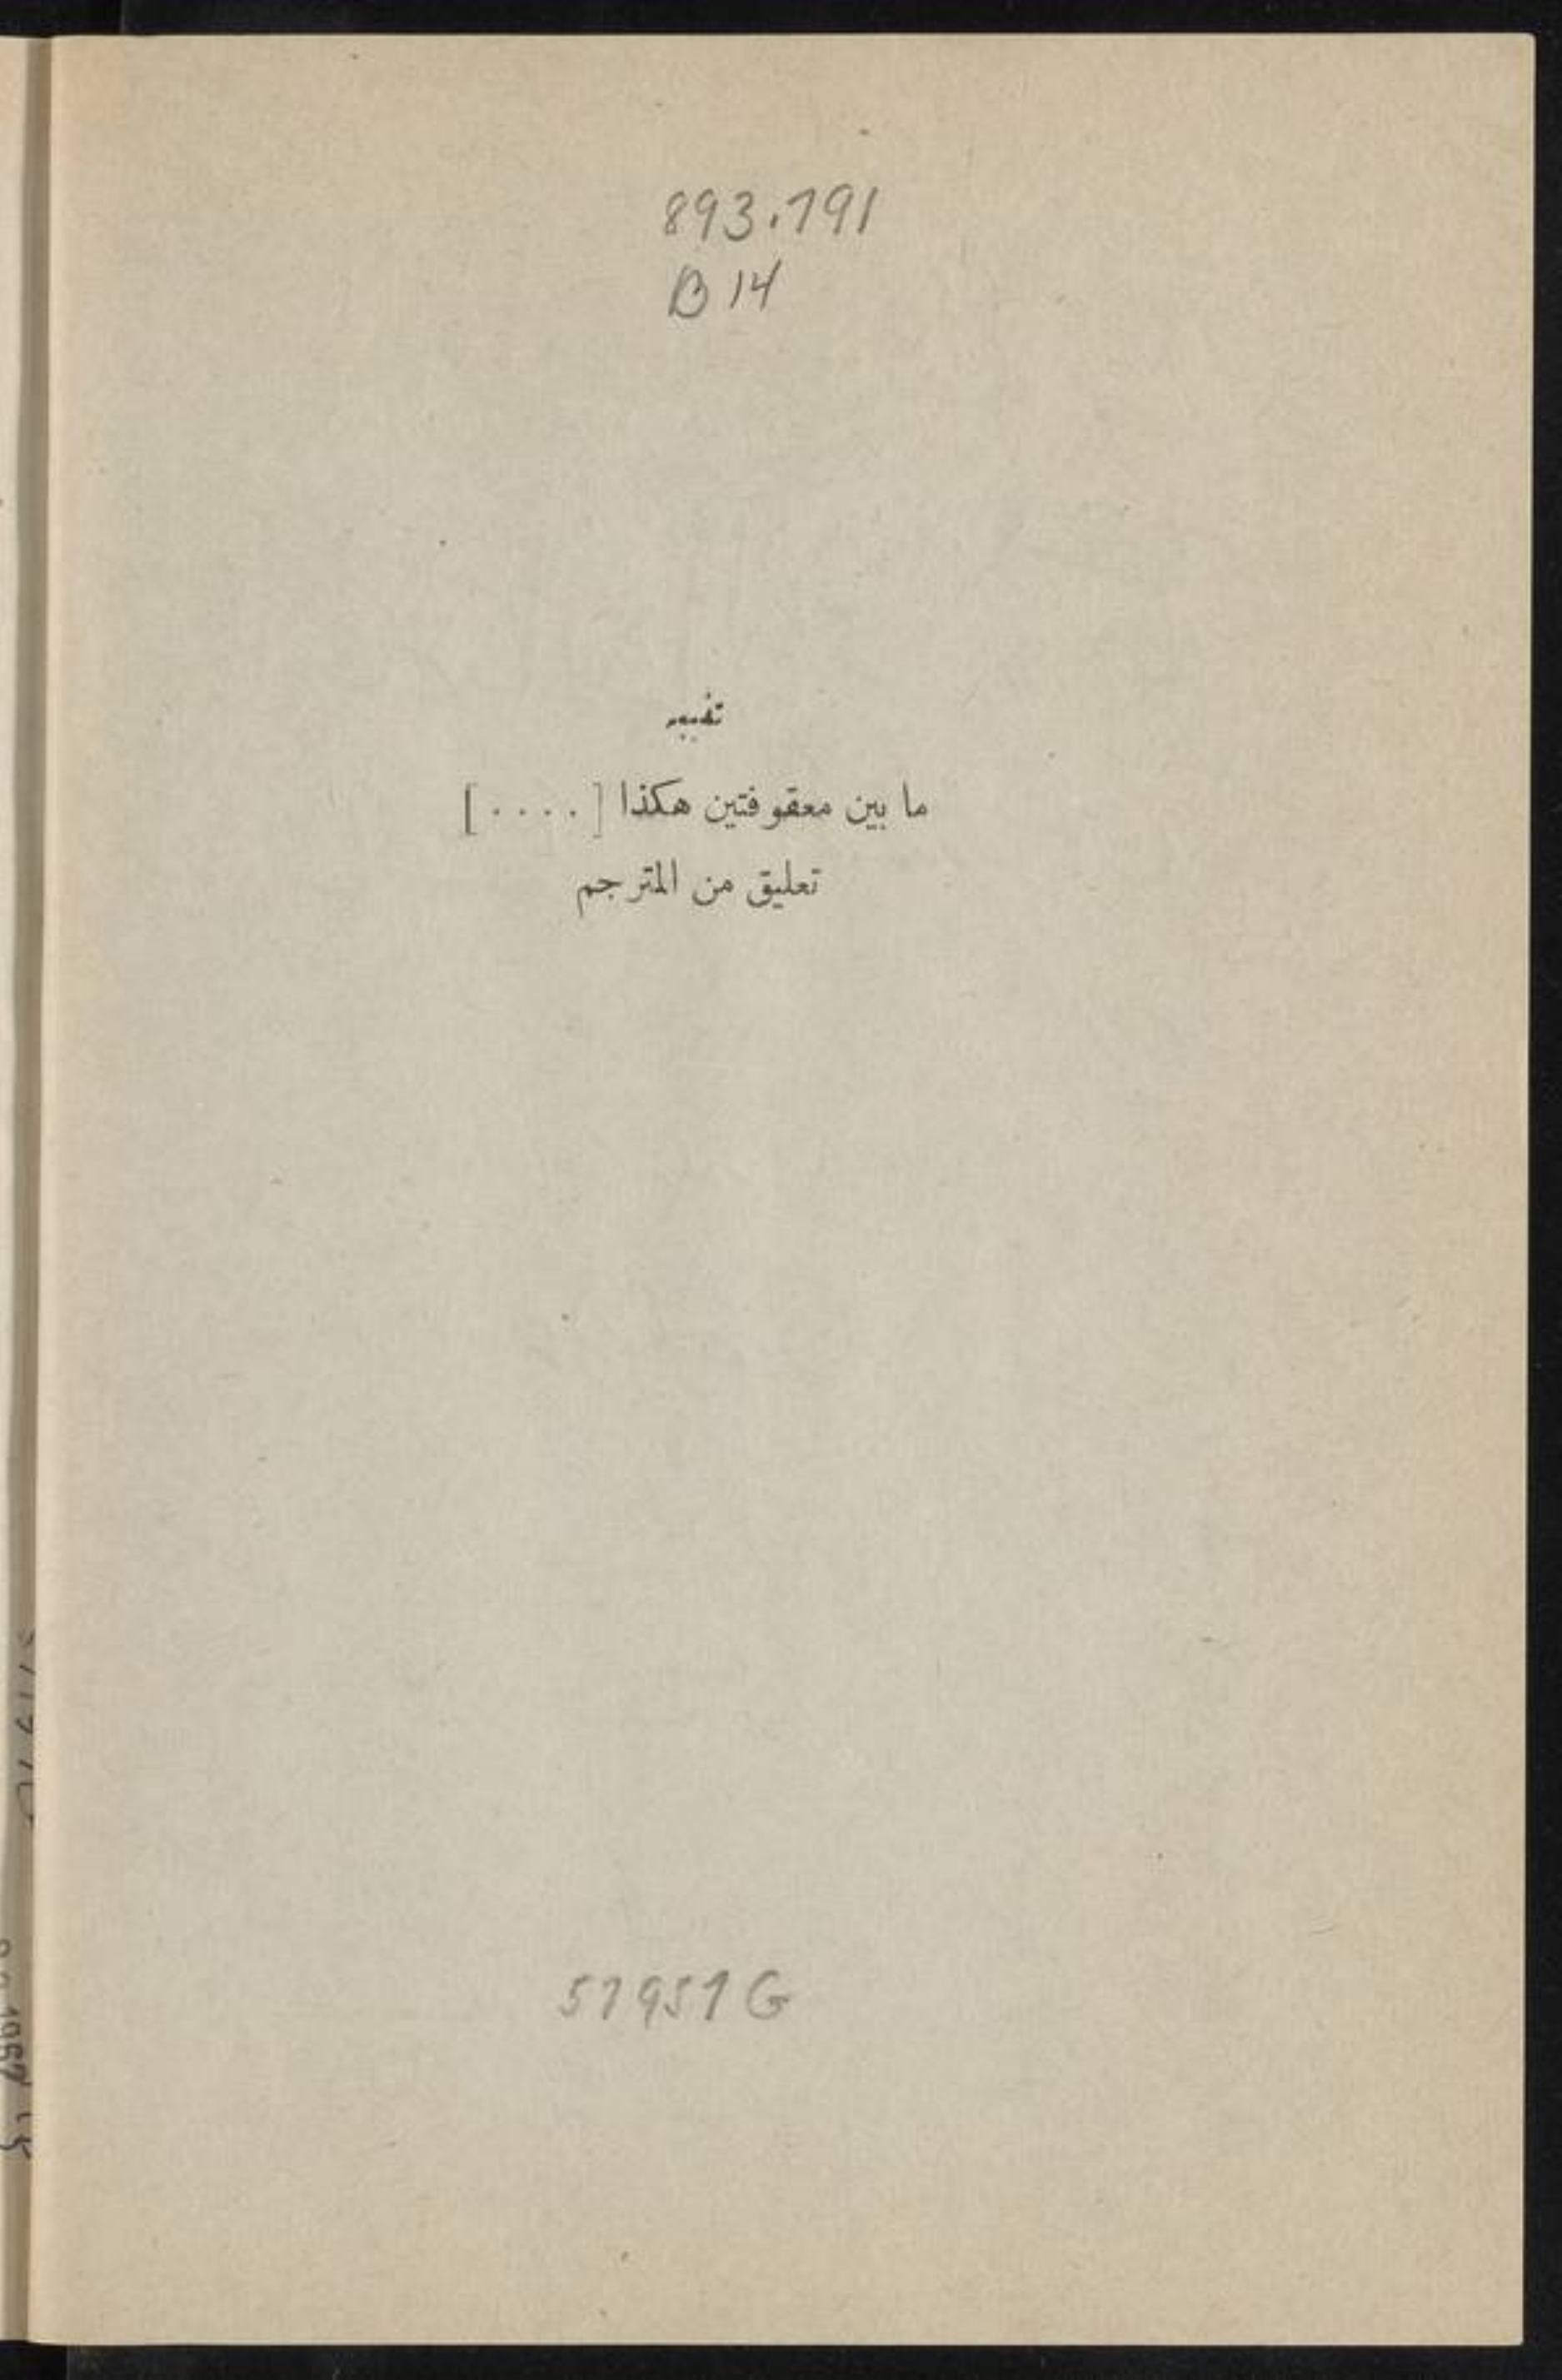 893.791
B 14
تنبيه
ما بين معقوفتين هكذا [ . . . . ]
تعليق من المترجم
51951 G